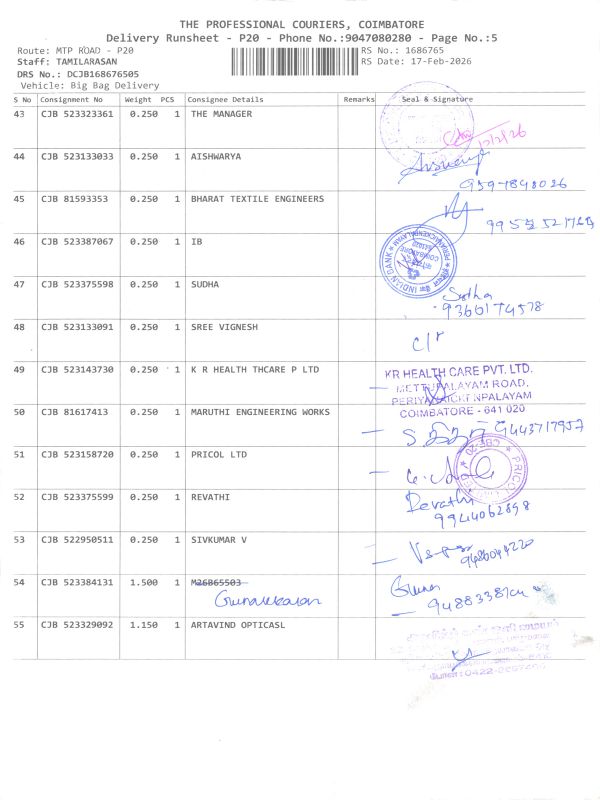 THE PROFESSIONAL COURIERS, COIMBATORE
Delivery Runsheet - P20 - Phone No.:9047080280 - Page No.:5
Route: MTP ROAD - P20
RS No.: 1686765
Staff: TAMILARASAN
RS Date: 17-Feb-2026
DRS No.: DCJB168676505
Vehicle: Big Bag Delivery
S No Consignment No Weight PCS Consignee Details Remarks Seal & Signature
43 CJB 523323361 0.250 1 THE MANAGER
44 CJB 523133033 0.250 1 AISHWARYA
45 CJB 81593353 0.250 1 BHARAT TEXTILE ENGINEERS
46 CJB 523387067 0.250 1 IB
INDIAN BANK
47 CJB 523375598 0.250 1 SUDHA
Sudha
9366174578
48 CJB 523133091 0.250 1 SREE VIGNESH
C/r
49 CJB 523143730 0.250 1 K R HEALTH THCARE P LTD
KR HEALTH CARE PVT. LTD.
METTUPALAYAM ROAD,
COIMBATORE - 641 020
50 CJB 81617413 0.250 1 MARUTHI ENGINEERING WORKS
9443717957
51 CJB 523158720 0.250 1 PRICOL LTD
PRICOL
52 CJB 523375599 0.250 1 REVATHI
Revathi
9944062898
53 CJB 522950511 0.250 1 SIVKUMAR V
54 CJB 523384131 1.500 1 M26B65503
Gunasekaran
55 CJB 523329092 1.150 1 ARTAVIND OPTICASL